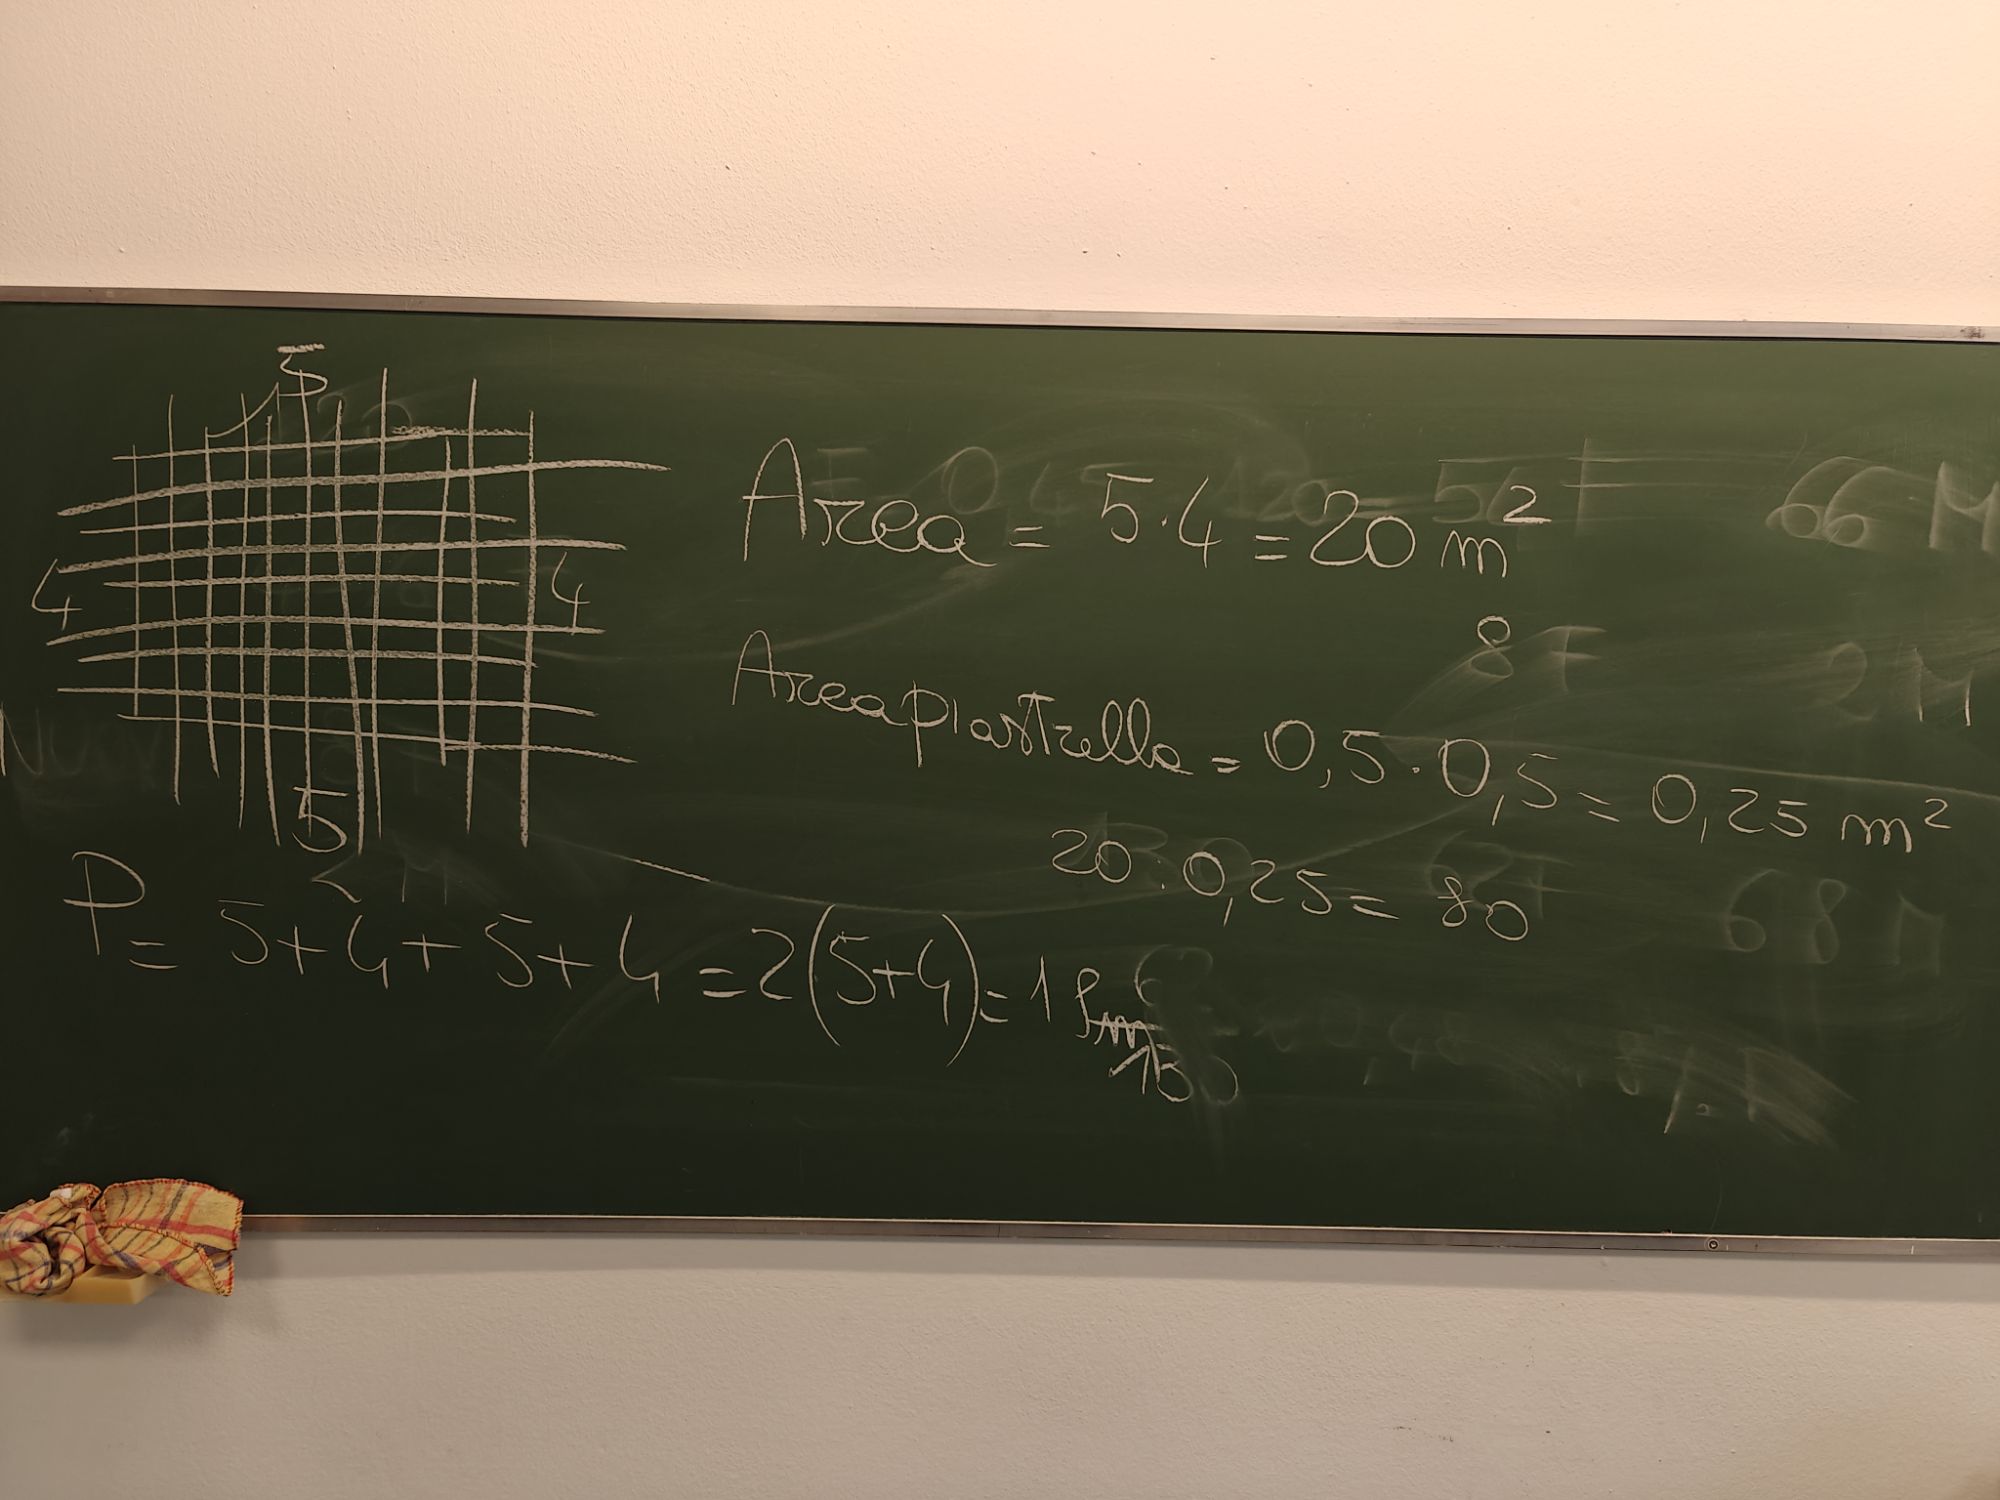 5
4
4
5
Area = 5·4 = 20 m²
Area piastrella = 0,5·0,5 = 0,25 m²
20:0,25 = 80
P = 5+4+5+4 = 2(5+4) = 18m